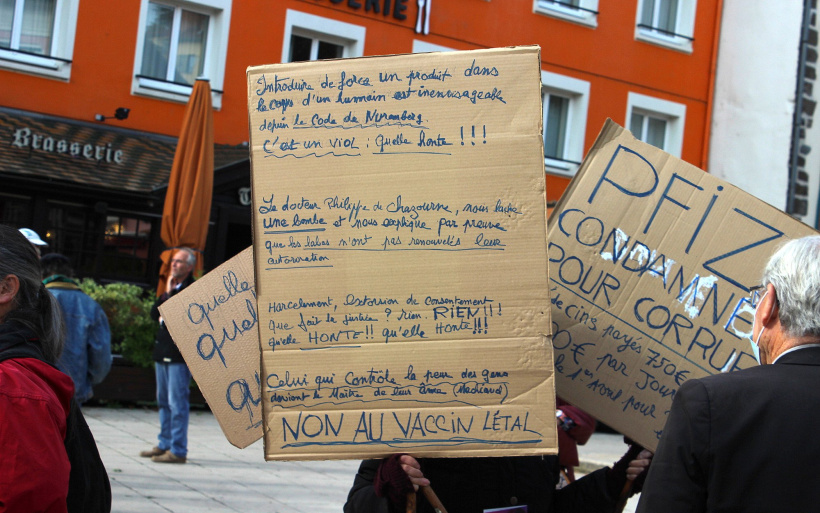 SSERIE
Brasserie
Introduire de force un produit dans
le corps d'un humain est inenvisageable
depuis le Code de Nuremberg.
C'est un VIOL : quelle honte !!!
Le docteur Philippe de Chazourne, nous lache
UNE bombe et nous explique par preuve
que les labos n'ont pas renouvelés leur
autorisation
Harcelement, Extorsion de Consentement
Que fait la justice ? rien RIEN !!!
qu'elle HONTE !! qu'elle Honte !!!
Celui qui Contrôle la peur des gens
devient le Maitre de leur âme (Machiavel)
NON AU VACCIN LÉTAL
Quelle
quel
PFIZ
CONDAMNE
POUR CORRUP
decins payés 750€
0€ par Jour
le 1er Avril pour